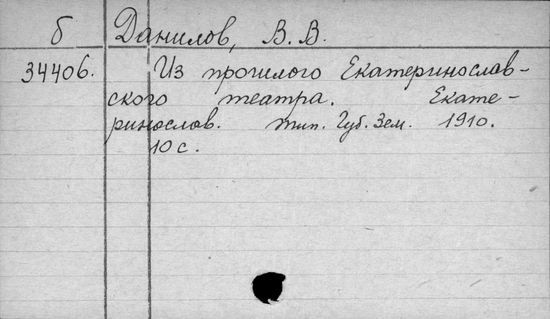 б Данилов, В. В.
34406. Из прошлого Екатеринослав-
ского театра. Екате-
ринослав. тип. Губ. Зем. 1910.
10 с.